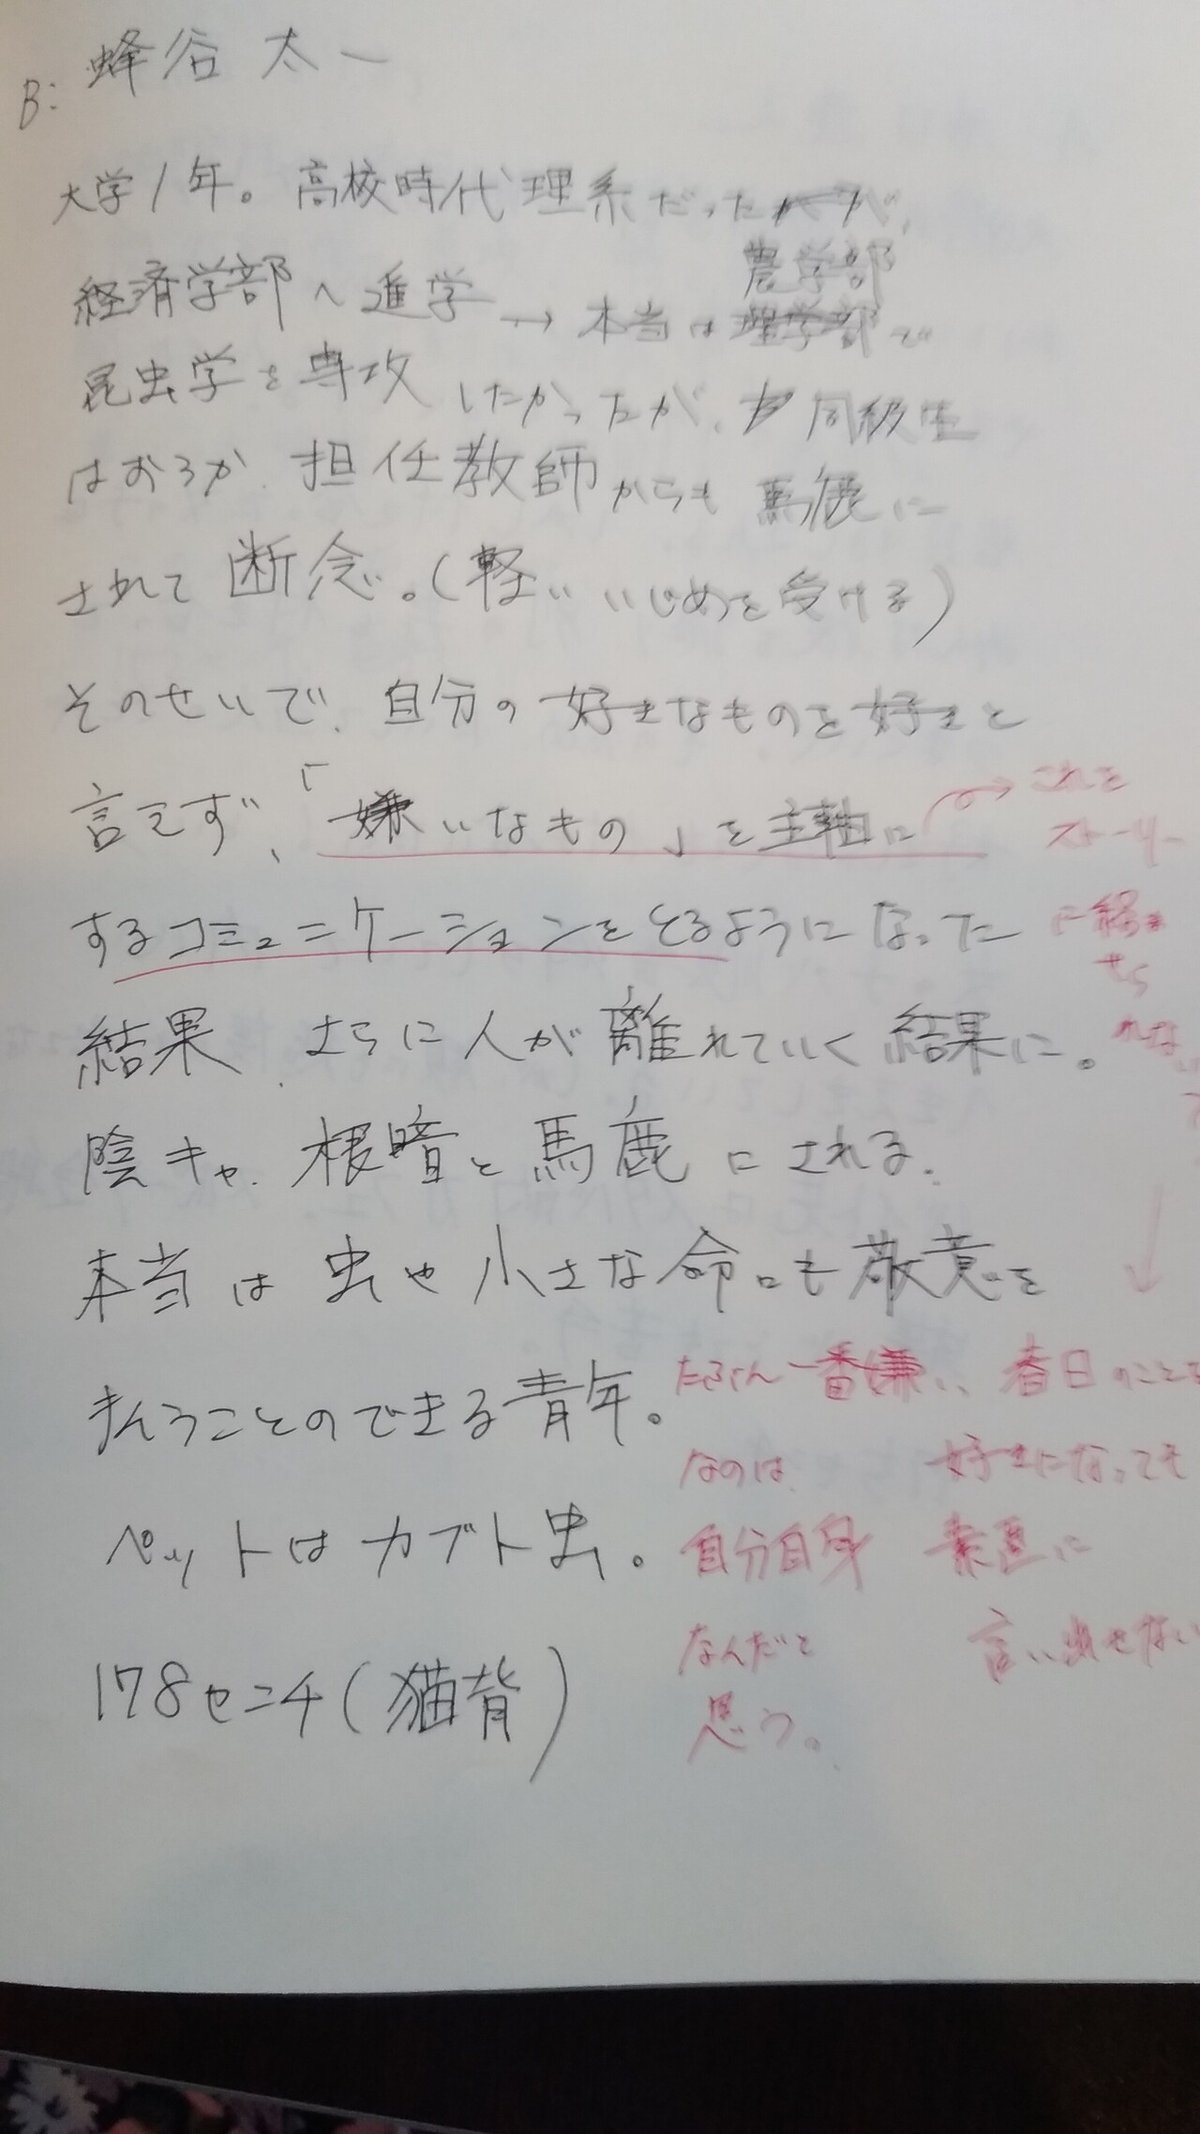 B: 蜂谷 太一
大学1年。高校時代理系だったが、
経済学部へ進学→本当は理学部で
農学部
昆虫学を専攻したかったが、同級生
はおろか、担任教師からも馬鹿に
されて断念。(軽いいじめを受ける)
そのせいで、自分の好きなものを好きと
言えず、「嫌いなもの」を主軸に
するコミュニケーションをとるようになった
結果、さらに人が離れていく結果に。
陰キャ、根暗と馬鹿にされる。
本当は虫や小さな命にも敬意を
はらうことのできる青年。
ペットはカブト虫。
178センチ(猫背)
これを
ストーリー
に絡ま
せら
れない
たぶん一番嫌い
なのは、
自分自身
なんだと
思う。
春日のことを
好きになっても
素直に
言い出せない